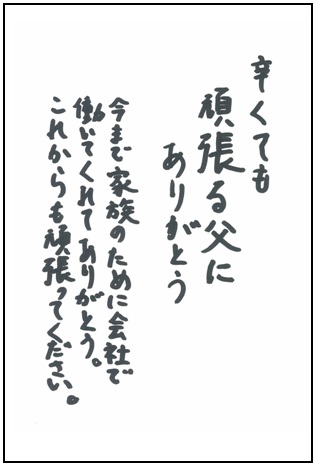 辛くても
頑張る父に
ありがとう
今まで家族のために会社で
働いてくれてありがとう。
これからも頑張ってください。